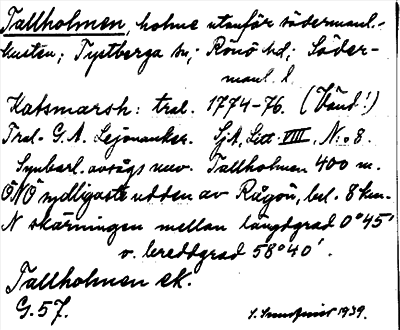 Tallholmen, holme utanför södermanl.-
kusten; Tystberga sn; Rönö hd; Söder-
manl. l.
Katsmarsk: tral. 1774-76. (Vänd!)
Tral. G. A. Lejonanker. Sj.A, Litt. VIII, N:o 8.
Synbarl. avsågs nuv. Tallholmen 400 m.
ÖNÖ sydligaste udden av Rågön, bel. 8 km.
N skärningen mellan längdgrad 0°45'
o. breddgrad 58°40'.
Tallholmen ek.
G. 57.
S. Sundqvist 1939.